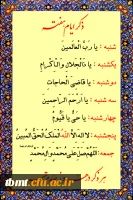 ذکر ایام هفته
شنبه : یا رَبَّ الْعالَمین
یکشنبه : یا ذَالْجَلالِ وَالْاِکْرام
دوشنبه : یا قاضِیَ الْحاجات
سه شنبه : یا اَرْحَمَ الرّاحِمین
چهارشنبه : یا حَیُّ یا قَیّومُ
پنجشنبه : لا اِلهَ اِلَّا اللهُ الْمَلِکُ الْحَقُّ الْمُبین
جمعه : اَللّهُمَّ صَلِّ عَلی مُحَمَّدٍ وَ آلِ مُحَمَّد
هر ذکر